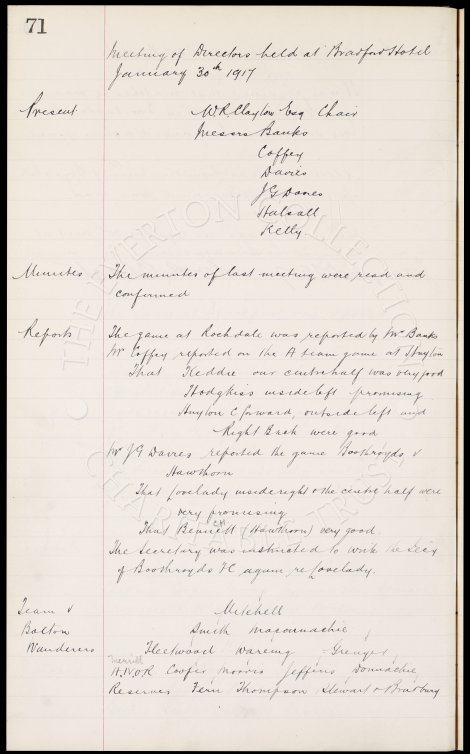 71
Meeting of Directors held at Bradford Hotel
January 30th 1917
Present W.R. Clayton Esq Chair
Messrs Banks
Coffey
Davies
J G Davies
Halsall
Kelly.
Minutes The minutes of last meeting were read and
confirmed
Reports The game at Rochdale was reported by Mr Banks
Mr Coffey reported on the A team game at Huyton
That Keddie our centre half was very good
Hodgkiss inside left promising
Huyton C forward, outside left and
Right Back were good
Mr J G Davies reported the game Boothroyds v
Hawthorn
That Lovelady inside right & the centre half were
very promising
That Bennett CH (Hawthorn) very good
The Secretary was instructed to write the Secy
of Boothroyds FC again re Lovelady.
Team v Mitchell
Bolton Smith Maconnachie
Wanderers Fleetwood Wareing Grenyer
Merritt
A.N.O.R Cooper Morris Jeffries Donnachie
Reserves Fern, Thompson, Stewart & Bradbury
© THE EVERTON COLLECTION
CHARITABLE TRUST